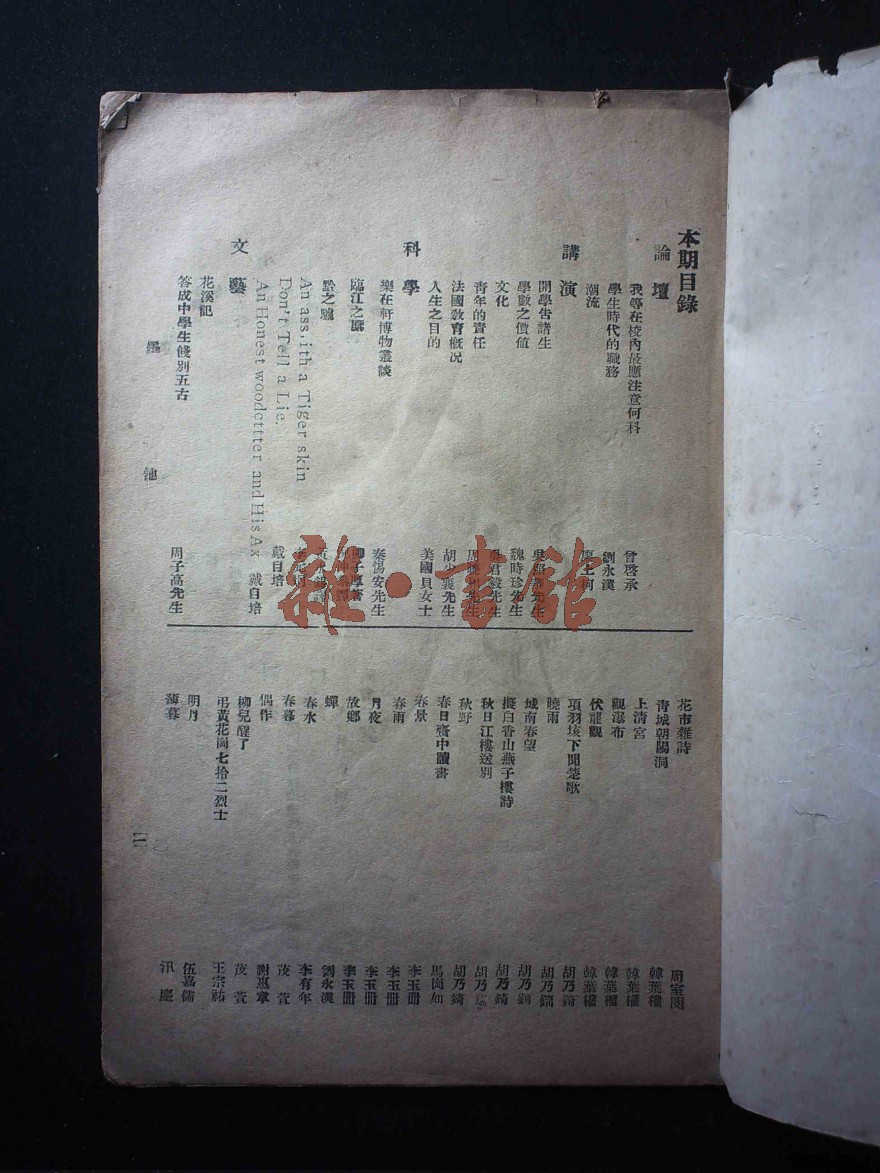 本期目錄
論壇
我等在校內最應注意何科 曾啓承
學生時代的職務 劉永漢
潮流
講演
開學告諸生
學數之價值 魏時珍先生
文化
青年的責任
法國教育概況
人生之目的 美國貝女士
科學
樂在軒博物叢談 秦惕安先生
臨江之麋 柳子厚著
黔之驢
An ass,ith a Tiger skin
Don't Tell a Lie. 戴自培
An Honest woodcttter and His Ax 戴自培
文藝
花溪記
答成中學生餞別五古 周子高先生
花市雜詩
青城朝陽洞 韓葉檣
上清宮 韓葉檣
觀瀑布 韓葉檣
伏龍觀 韓葉檣
項羽垓下聞楚歌 胡乃錡
曉雨 胡乃錡
城南春望 胡乃錡
擬白香山燕子樓詩 胡乃錡
秋日江樓送別 胡乃錡
秋野 胡乃錡
春日齋中讀書 馬尚如
春景 李玉冊
春雨 李玉冊
月夜 李玉冊
故鄉 李玉冊
蟬 劉永漢
春水 李有年
春暮 茂萱
偶作 謝惠章
柳兒醒了 茂萱
弔黃花崗七拾二烈士 王宗祐
明月 伍嘉儒
薄暮 汛塵
墨池
二
雜·書館